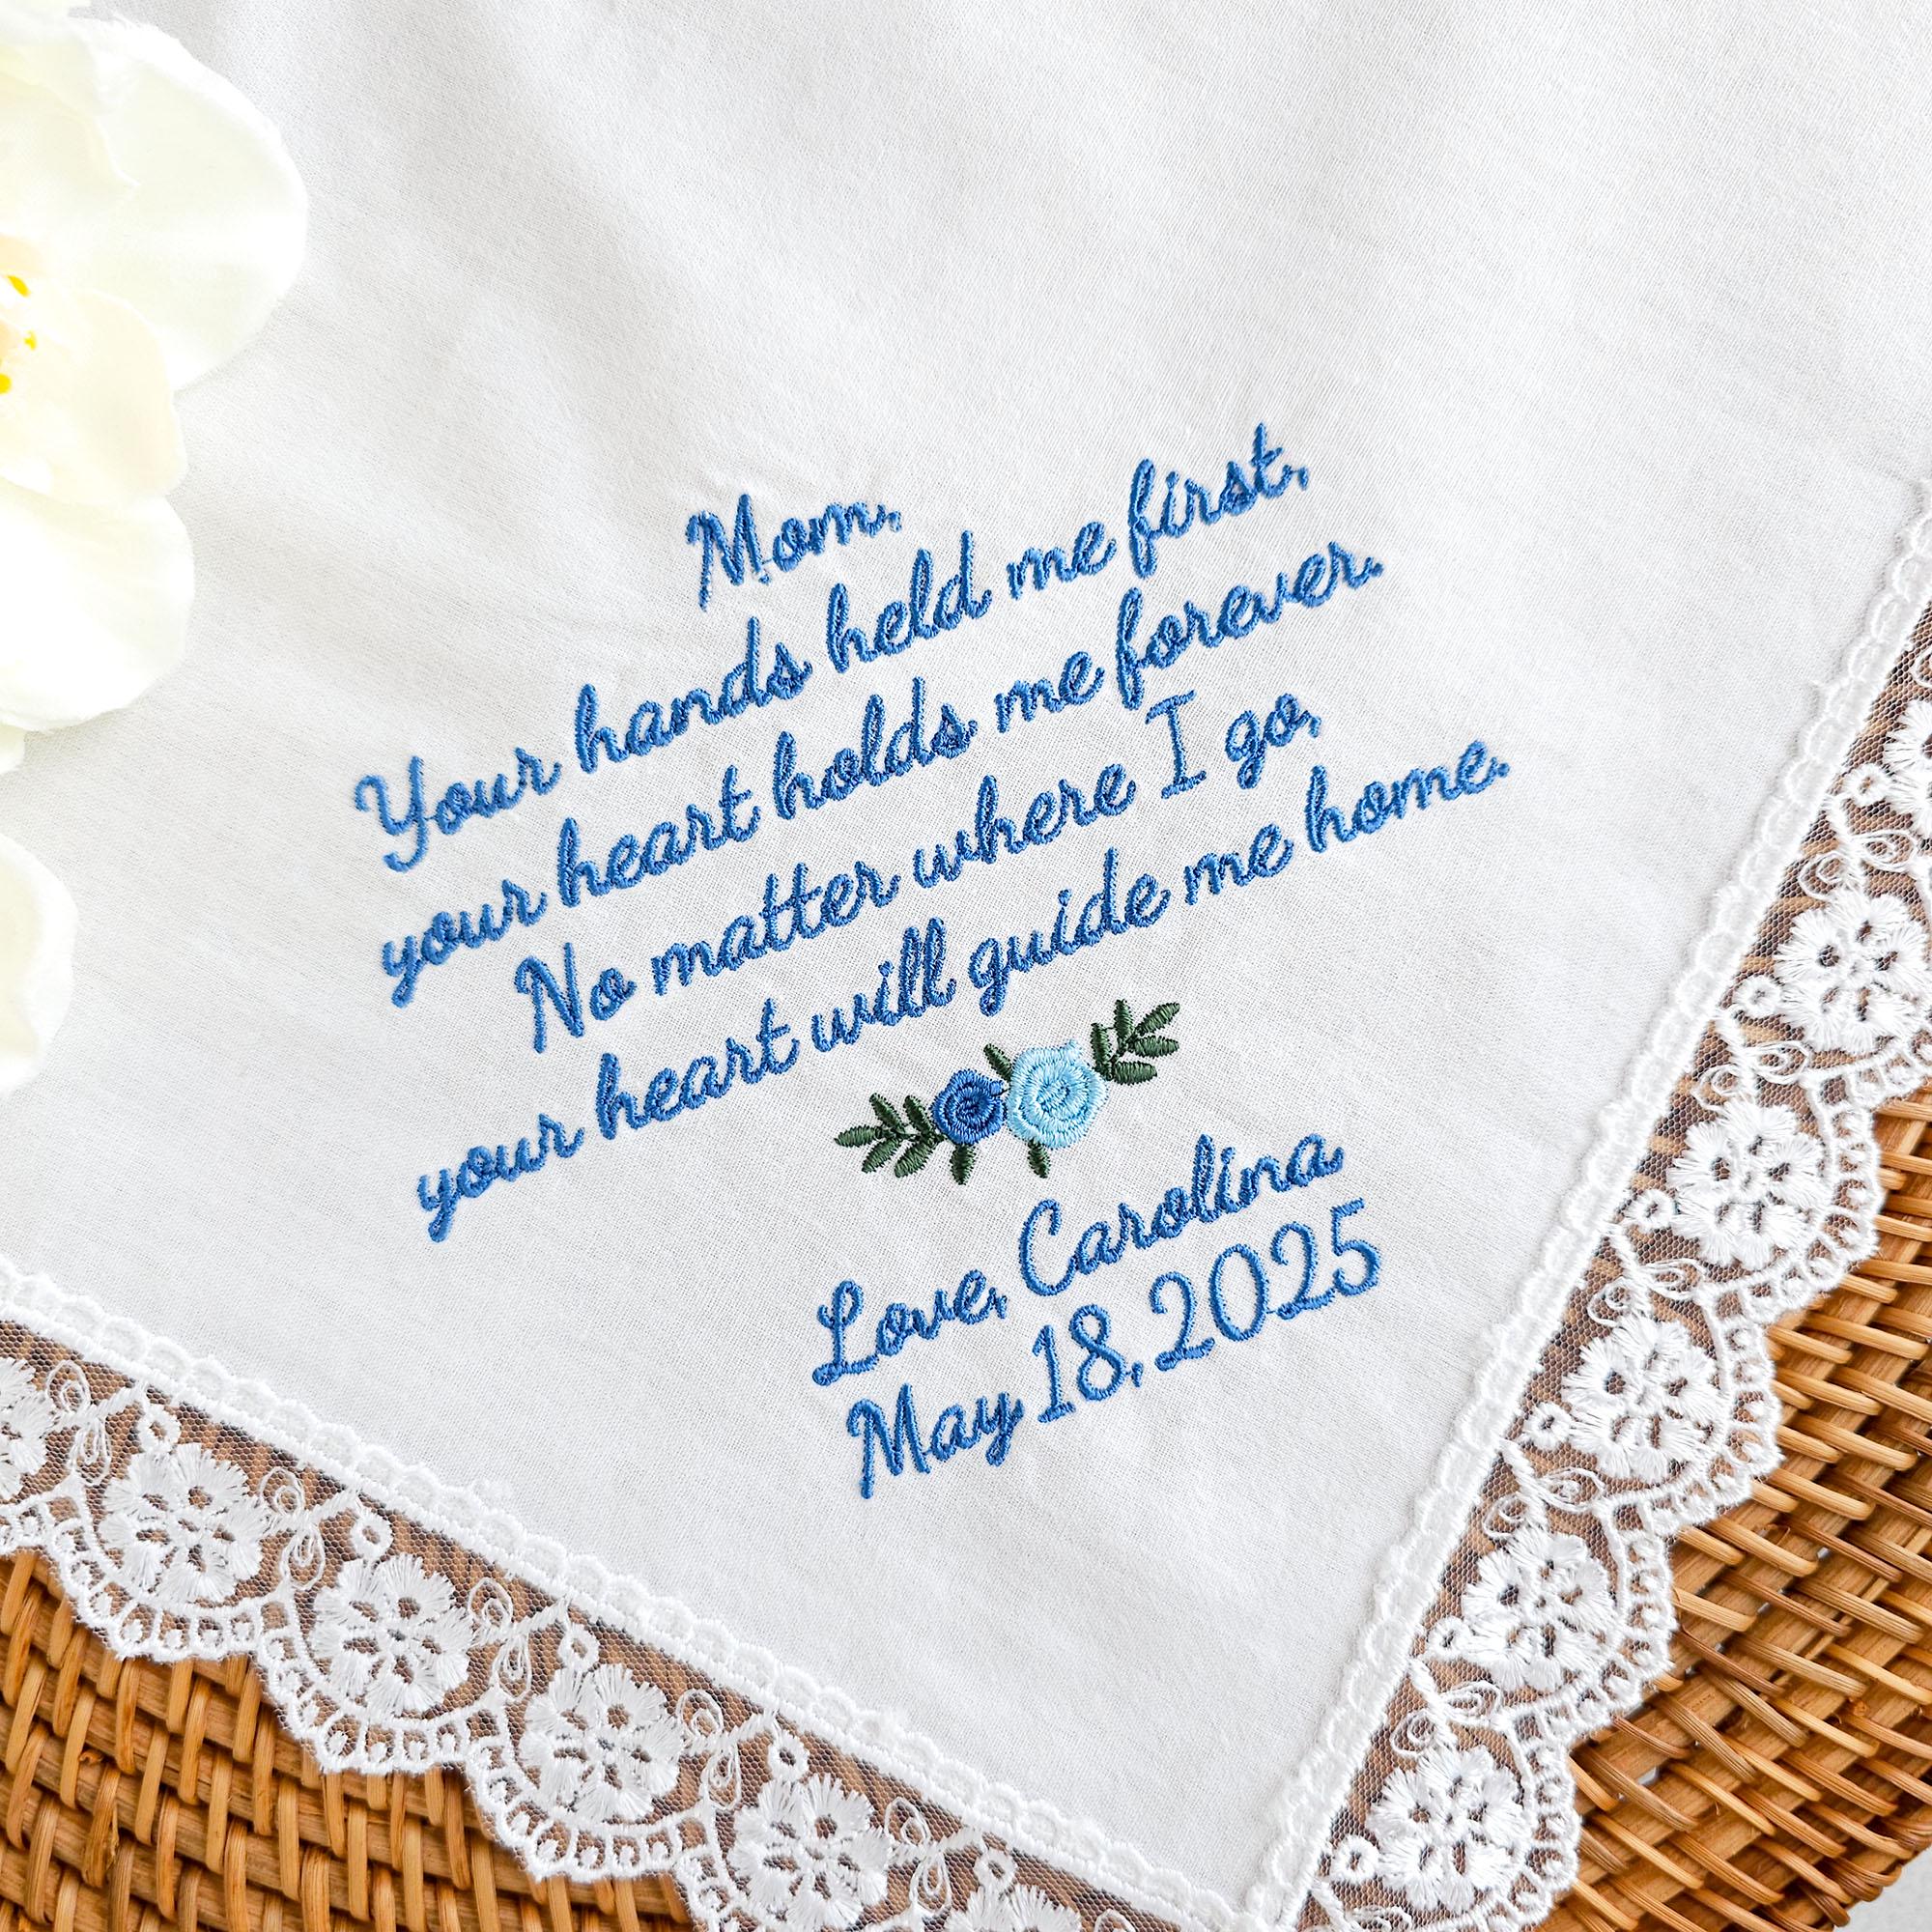 Mom,
Your hands held me first,
your heart holds me forever.
No matter where I go,
your heart will guide me home.
Love, Carolina
May 18, 2025